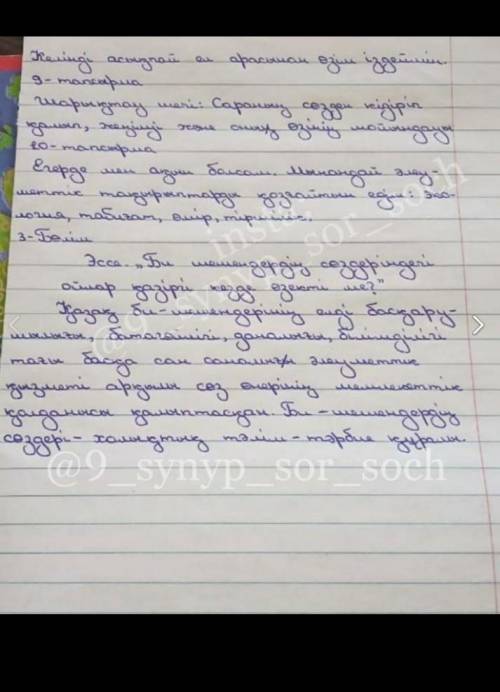 Келінді асықпай ел арасынан өзім іздеймін.
9-тапсырма
Шарықтау шегі: Сараның сөзден кідіріп
қалып, жеңіші және оның өзінің мойындауы
10-тапсырма
Егерде мен ақын болсам. Мынандай әлеу-
меттік тақырыптарды қозғайтын едім: эко-
логия, табиғат, өмір, тіршілік.
3-Бөлім
Эссе. „Би шешендердің сөздеріндегі
ойлар қазіргі кезде өзекті ме?"
Қазақ би-шешендерінің елді басқару-
шылығы, батагөйлігі, даналығы, білімділігі
тағы басқа сан саналылы әлеуметтік
қызметі арқылы сөз өнерінің мемлекеттік
қолданысы қалыптасқан. Би-шешендердің
сөздері - халықтық тәлім-тәрбие құралы.
insta:
@9_synyp_sor_soch
@9_synyp_sor_soch